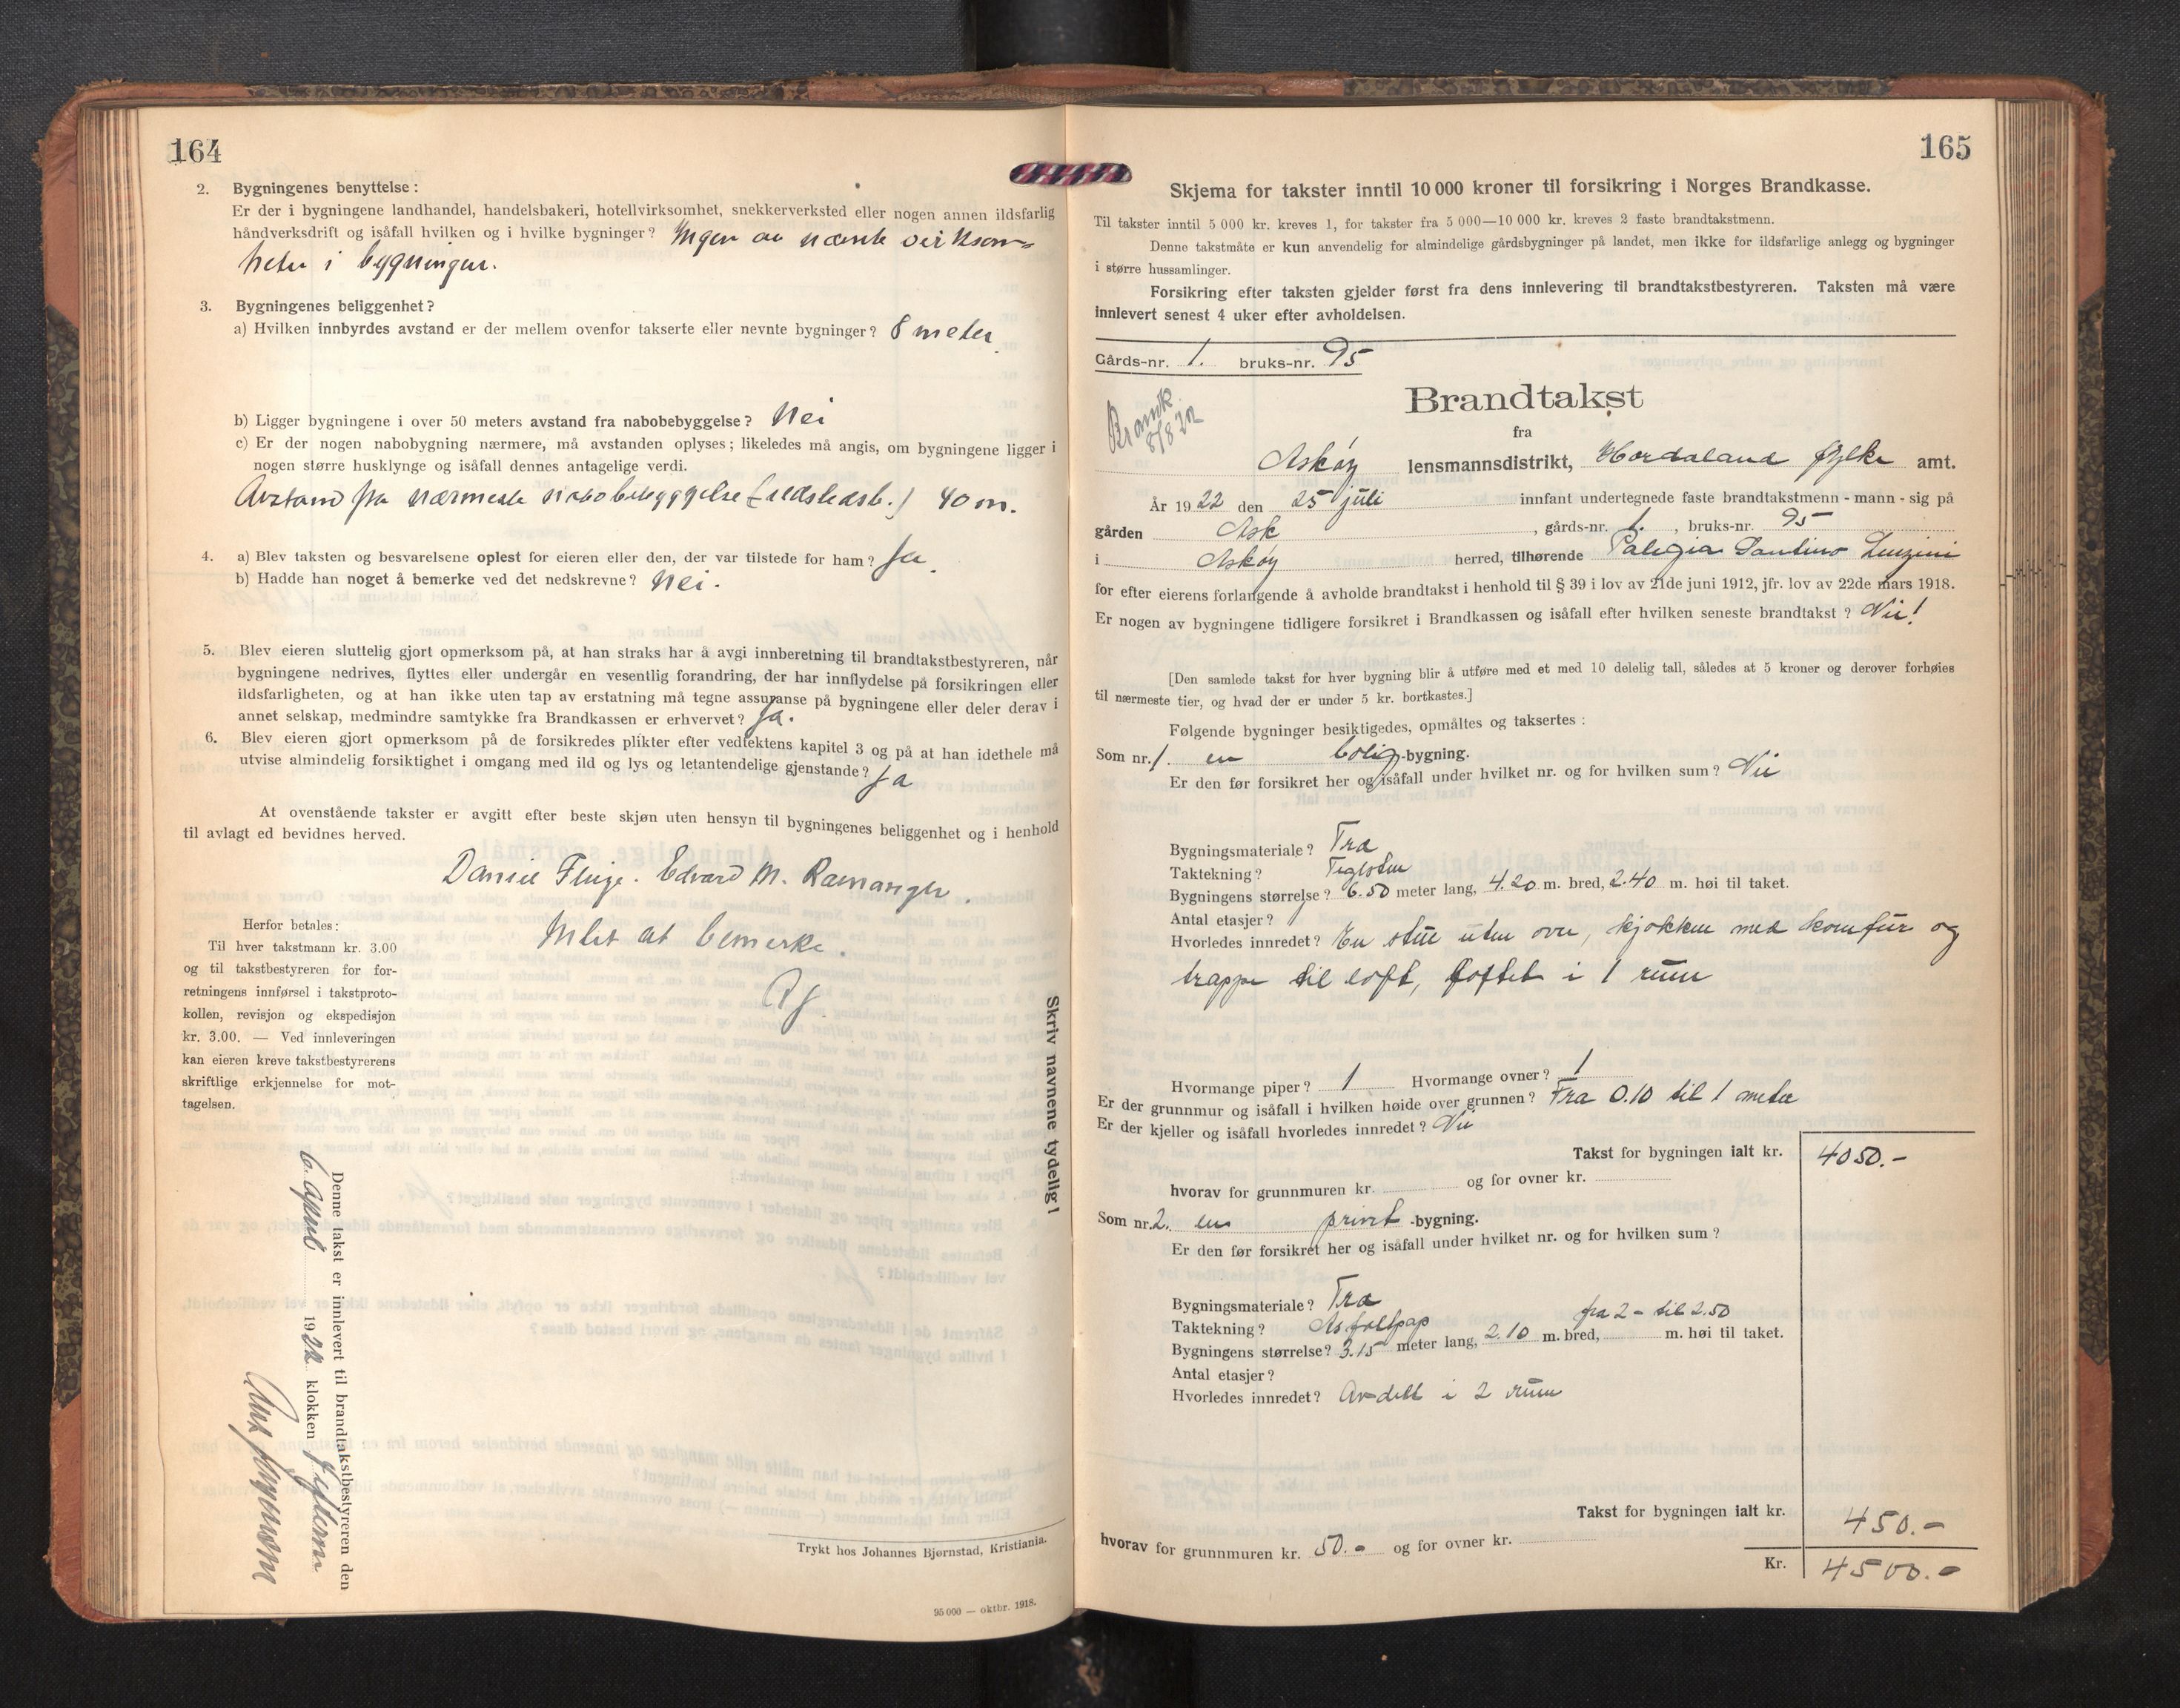 164
2. Bygningenes benyttelse:
Er der i bygningene landhandel, handelsbakeri, hotellvirksomhet, snekkerverksted eller nogen annen ildsfarlig
håndverksdrift og isåfall hvilken og i hvilke bygninger? Ingen av nævnte virksom-
heter i bygningen.
3. Bygningenes beliggenhet?
a) Hvilken innbyrdes avstand er der mellem ovenfor takserte eller nevnte bygninger? 8 meter.
b) Ligger bygningene i over 50 meters avstand fra nabobebyggelse? Nei
c) Er der nogen nabobygning nærmere, må avstanden oplyses; likeledes må angis, om bygningene ligger i
nogen større husklynge og isåfall dennes antagelige verdi.
Avstand fra nærmeste nabobebyggelse 40 m.
4. a) Blev taksten og besvarelsene oplest for eieren eller den, der var tilstede for ham? Ja.
b) Hadde han noget å bemerke ved det nedskrevne? Nei.
5. Blev eieren sluttelig gjort opmerksom på, at han straks har å avgi innberetning til brandtakstbestyreren, når
bygningene nedrives, flyttes eller undergår en vesentlig forandring, der har innflydelse på forsikringen eller
ildsfarligheten, og at han ikke uten tap av erstatning må tegne assuranse på bygningene eller deler derav i
annet selskap, medmindre samtykke fra Brandkassen er erhvervet? Ja.
6. Blev eieren gjort opmerksom på de forsikredes plikter efter vedtektens kapitel 3 og på at han idethele må
utvise almindelig forsiktighet i omgang med ild og lys og letantendelige gjenstande? Ja
At ovenstående takster er avgitt efter beste skjøn uten hensyn til bygningenes beliggenhet og i henhold
til avlagt ed bevidnes herved.
Daniel Fluge. Edvard M. Ramanger.
Intet at bemerke.
Herfor betales:
Til hver takstmann kr. 3.00
og til takstbestyreren for for-
retningens innførsel i takstproto-
kollen, revisjon og ekspedisjon
kr. 3.00. — Ved innleveringen
kan eieren kreve takstbestyrerens
skriftlige erkjennelse for mot-
tagelsen.
Skriv navnene tydelig!
Denne takst er innlevert til brandtakstbestyreren den
1922 klokken
Trykt hos Johannes Bjørnstad, Kristiania.
95 000 — oktbr. 1918.
165
Skjema for takster inntil 10 000 kroner til forsikring i Norges Brandkasse.
Til takster inntil 5 000 kr. kreves 1, for takster fra 5 000—10 000 kr. kreves 2 faste brandtakstmenn.
Denne takstmåte er kun anvendelig for almindelige gårdsbygninger på landet, men ikke for ildsfarlige anlegg og bygninger
i større hussamlinger.
Forsikring efter taksten gjelder først fra dens innlevering til brandtakstbestyreren. Taksten må være
innlevert senest 4 uker efter avholdelsen.
Gårds-nr. 1. bruks-nr. 95
Brandtakst
fra
Askøy lensmannsdistrikt, Hordaland fylke amt.
År 1922 den 25 juli innfant undertegnede faste brandtakstmenn - mann - sig på
gården Ask, gårds-nr. 1., bruks-nr. 95
i Askøy herred, tilhørende Paligia Santino Linzini
for efter eierens forlangende å avholde brandtakst i henhold til § 39 i lov av 21de juni 1912, jfr. lov av 22de mars 1918.
Er nogen av bygningene tidligere forsikret i Brandkassen og isåfall efter hvilken seneste brandtakst? Nei!
[Den samlede takst for hver bygning blir å utføre med et med 10 delelig tall, således at 5 kroner og derover forhøies
til nærmeste tier, og hvad der er under 5 kr. bortkastes.]
Følgende bygninger besiktigedes, opmåltes og taksertes:
Som nr. 1. en bolig-bygning.
Er den før forsikret her og isåfall under hvilket nr. og for hvilken sum? Nei
Bygningsmateriale? Træ
Taktekning? Teglsten
Bygningens størrelse? 6.50 meter lang, 4.20 m. bred, 2.40 m. høi til taket.
Antal etasjer?
Hvorledes innredet? En stue uten ovn, kjøkken med komfur og
trappe til loft, loftet i 1 rum
Hvormange piper? 1 Hvormange ovner? 1
Er der grunnmur og isåfall i hvilken høide over grunnen? Fra 0.10 til 1 meter
Er der kjeller og isåfall hvorledes innredet? Nei
Takst for bygningen ialt kr. 4050.-
hvorav for grunnmuren kr. og for ovner kr.
Som nr. 2. en privet-bygning.
Er den før forsikret her og isåfall under hvilket nr. og for hvilken sum?
Bygningsmateriale? Træ
Taktekning? Asfaltpap fra 2 - til 2.50
Bygningens størrelse? 3.15 meter lang, 2.10 m. bred, m. høi til taket.
Antal etasjer?
Hvorledes innredet? Avdelt i 2 rum
Takst for bygningen ialt kr. 450.-
hvorav for grunnmuren kr. 50.- og for ovner kr.
Kr. 4500.-